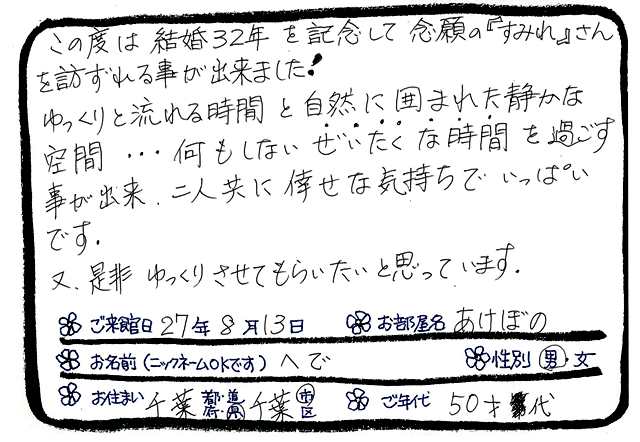 この度は 結婚32年 を記念して 念願の『すみれ』さん
を訪ずれる事が出来ました!
ゆっくりと流れる時間 と 自然に囲まれた静かな
空間 ・・・ 何もしない ぜいたくな時間 を過ごす
事が出来、二人共に 倖せな気持ちで いっぱい
です。
又、是非 ゆっくりさせてもらいたいと思っています。
ご来館日 27年 8月13日 お部屋名 あけぼの
お名前(ニックネームOKです) へで 性別 男・女
お住まい 千葉 都・道・府・県 千葉 市区 ご年代 50才代